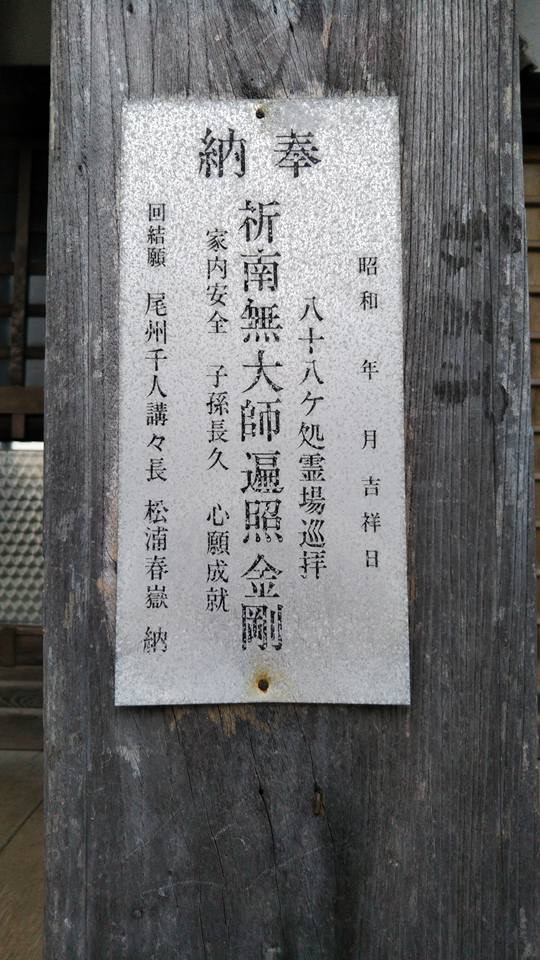 奉納
昭和 年 月吉祥日
八十八ケ処霊場巡拝
祈南無大師遍照金剛
家内安全 子孫長久 心願成就
回結願 尾州千人講々長 松浦春嶽 納